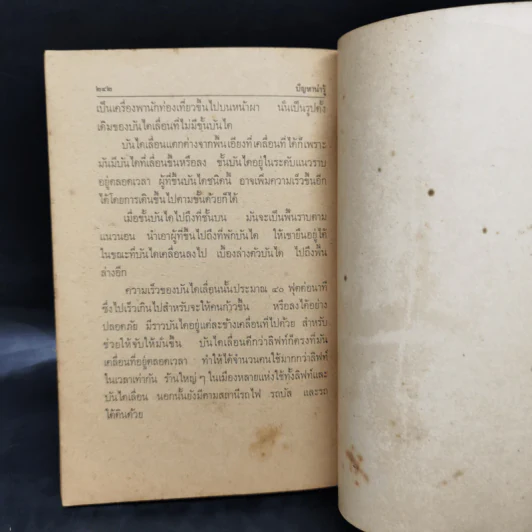 ๒๔๒ ปัญหาน่ารู้
เป็นเครื่องพานักท่องเที่ยวขึ้นไปบนหน้าผา นั่นเป็นรูปดั้ง
เดิมของบันไดเลื่อนที่ไม่มีขั้นบันได
บันไดเลื่อนแตกต่างจากพื้นเอียงที่เคลื่อนที่ได้ก็เพราะ
มันมีบันไดที่เลื่อนขึ้นหรือลง ขั้นบันไดอยู่ในระดับแนวราบ
อยู่ตลอดเวลา ผู้ที่ขึ้นบันไดชนิดนี้ อาจเพิ่มความเร็วขึ้นอีก
ได้โดยการเดินขึ้นไปตามขั้นด้วยก็ได้
เมื่อขั้นบันไดไปถึงที่ชั้นบน มันจะเป็นพื้นราบตาม
แนวนอน นำเอาผู้ที่ขึ้นไปถึงที่พักบันได ให้เขายืนอยู่ได้
ในขณะที่บันไดเคลื่อนลงไป เบื้องล่างตัวบันได ไปถึงพื้น
ล่างอีก
ความเร็วของบันไดเลื่อนนั้นประมาณ ๙๐ ฟุตต่อนาที
ซึ่งไม่เร็วเกินไปสำหรับจะให้คนก้าวขึ้น หรือลงได้อย่าง
ปลอดภัย มีราวบันไดอยู่แต่ละข้างเคลื่อนที่ไปด้วย สำหรับ
ช่วยให้จับให้มั่นขึ้น บันไดเลื่อนดีกว่าลิฟท์ก็ตรงที่มัน
เคลื่อนที่อยู่ตลอดเวลา ทำให้ได้จำนวนคนใช้มากกว่าลิฟท์
ในเวลาเท่ากัน ร้านใหญ่ ๆ ในเมืองหลายแห่งใช้ทั้งลิฟท์และ
บันไดเลื่อน นอกนั้นยังมีตามสถานีรถไฟ รถบัส และรถ
ใต้ดินด้วย